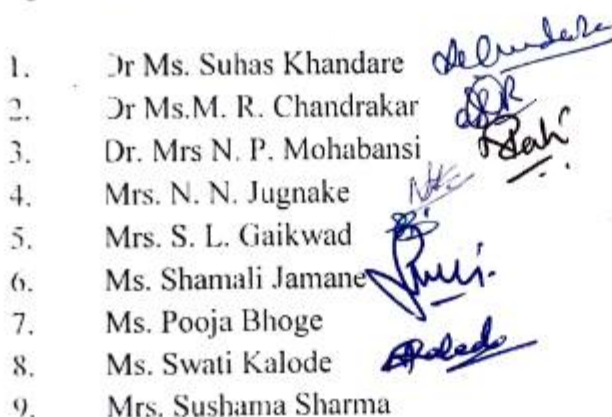 1. Dr Ms. Suhas Khandare
2. Dr Ms.M. R. Chandrakar
3. Dr. Mrs N. P. Mohabansi
4. Mrs. N. N. Jugnake
5. Mrs. S. L. Gaikwad
6. Ms. Shamali Jamane
7. Ms. Pooja Bhoge
8. Ms. Swati Kalode
9. Mrs. Sushama Sharma